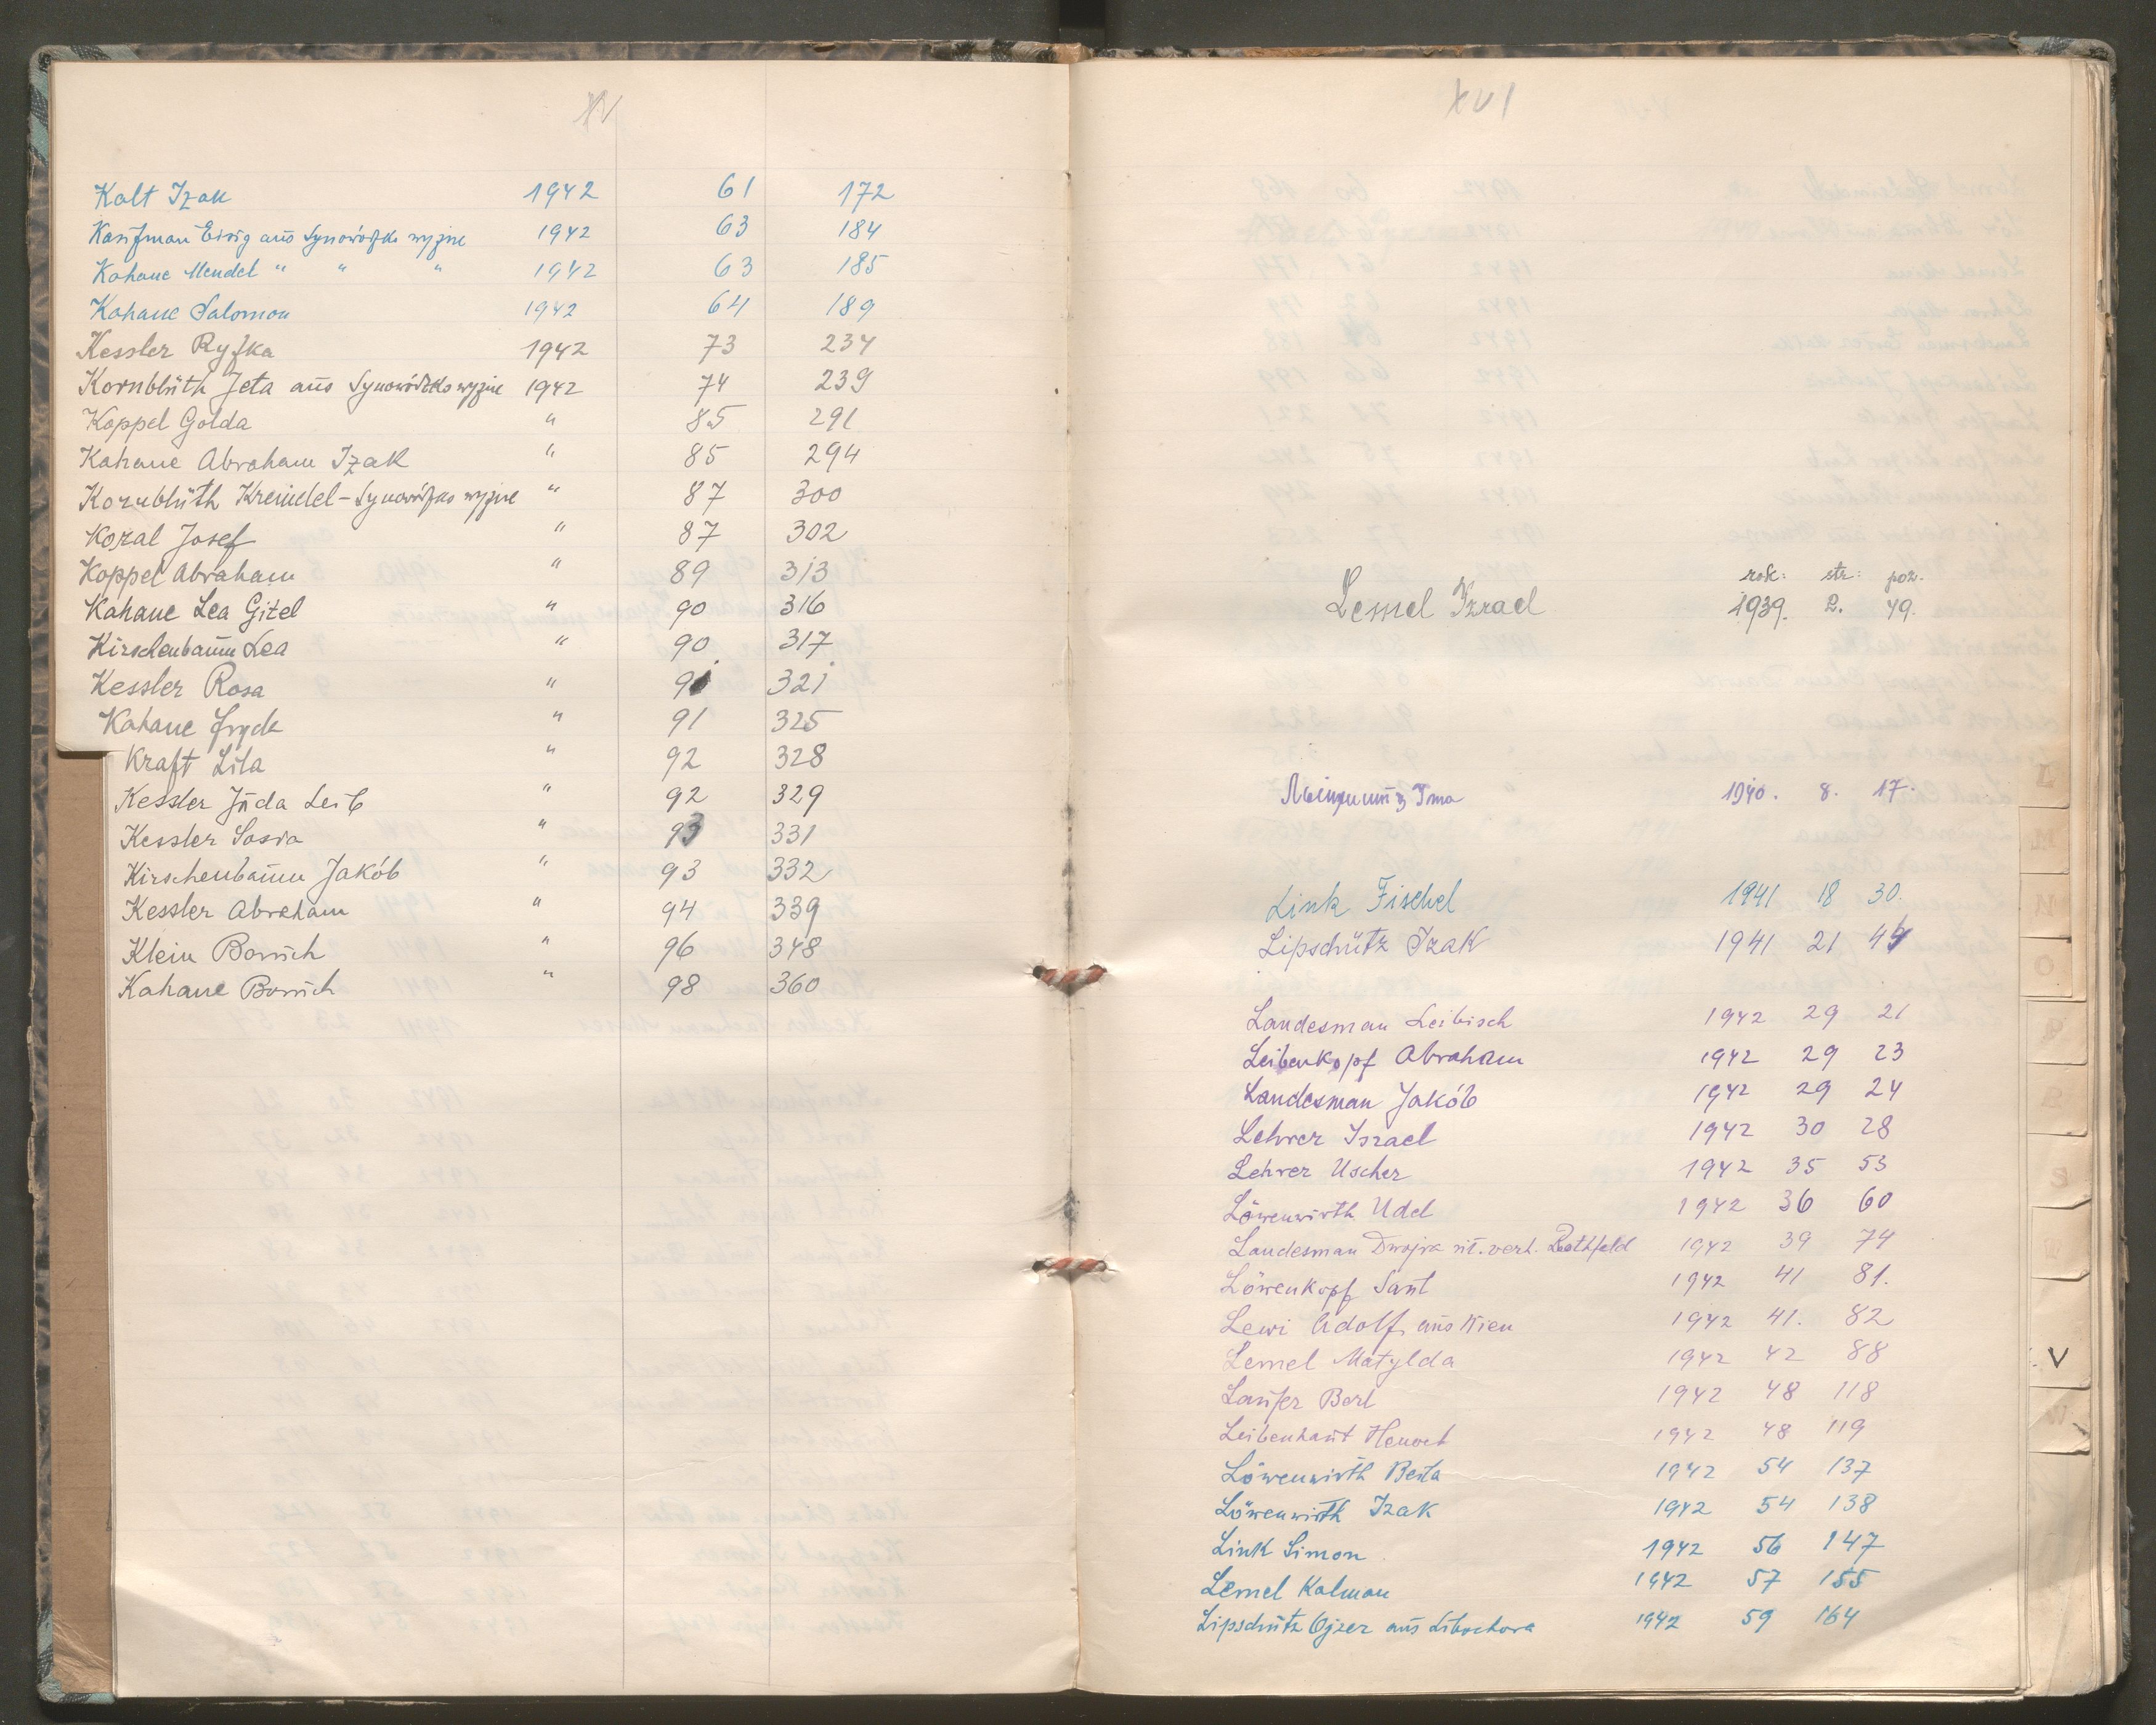 XV
Kalt Izak 1942 61 172
Kaufman Eisig aus Synowódzko wyżne 1942 63 184
Kahane Mendel " " " 1942 63 185
Kahane Salomon 1942 64 189
Kessler Ryfka 1942 73 234
Kornblüth Jeta aus Synowódzko wyżne 1942 74 239
Koppel Golda " 85 291
Kahane Abraham Izak " 85 294
Kornblüth Kreindel - Synowódzko wyżne " 87 300
Kozal Josef " 87 302
Koppel Abraham " 89 313
Kahane Lea Gitel " 90 316
Kirschenbaum Lea " 90 317
Kessler Rosa " 91 321
Kahane Fryda " 91 325
Kraft Lila " 92 328
Kessler Juda Leib " 92 329
Kessler Sosia " 93 331
Kirschenbaum Jakób " 93 332
Kessler Abraham " 94 339
Klein Boruch " 96 348
Kahane Boruch " 98 360
XVI
rok: str: poz.
Lemel Izrael 1939. 2. 49.
1940. 8. 17.
Link Fischel 1941 18 30.
Lipschütz Izak 1941 21 44
Landesman Leibisch 1942 29 21
Leibenkopf Abraham 1942 29 23
Landesman Jakób 1942 29 24
Lehrer Israel 1942 30 28
Lehrer Uscher 1942 35 53
Löwenwirth Udel 1942 36 60
Landesman Dwojra nit. verh. Rothfeld 1942 39 74
Löwenkopf Saul 1942 41 81.
Lewi Adolf aus Wien 1942 41. 82
Lemel Matylda 1942 42 88
Laufer Berl 1942 48 118
Leibenhaut Henoch 1942 48 119
Löwenwirth Berta 1942 54 137
Löwenwirth Izak 1942 54 138
Link Simon 1942 56 147
Lemel Kalman 1942 57 155
Lipschütz Ojzer aus Libochora 1942 59 164
V